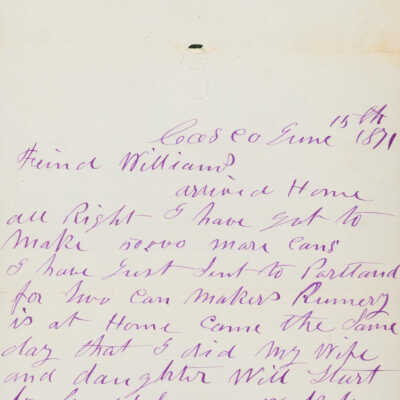 Casco June 15th 1871
Freind William
arrived Home
all Right I have got to
make 10000 more Cans
I have Just Sent to Portland
for two Can Makers Rumery
is at Home Came the Same
day that I did My Wife
and daughter Will Start